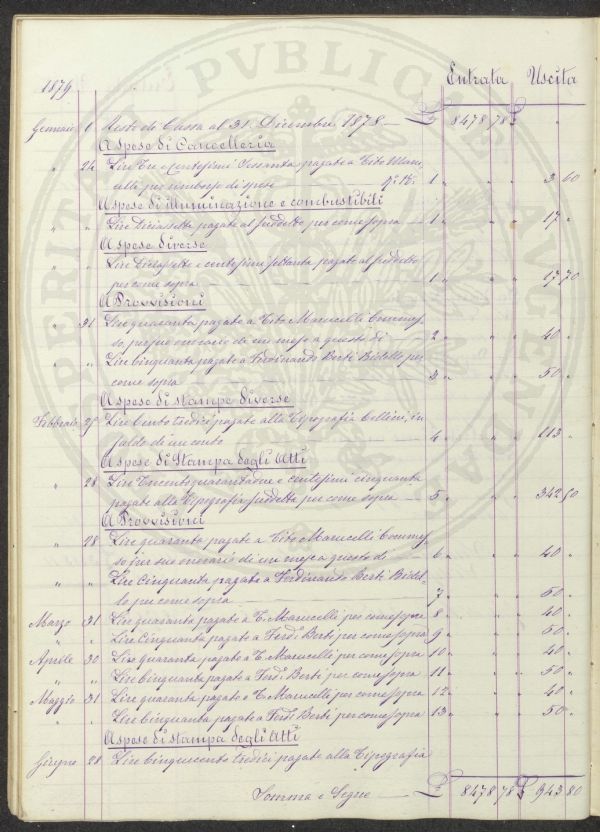 PVBLICE
PERITAT
AVGENDAE
Entrata Uscita
1879
Gennaio 1 Resto di Cassa al 31 Dicembre 1878 — £ 8478 78 £ "
A spese di Cancelleria
" 24 Lire Tre e centesimi Sessanta pagate a Tito Maru-
celli per rimborso di spese N°. Pi. 1 " " " 3 60
A spese di illuminazione e combustibili
" " Lire Diciassette pagate al suddetto per come sopra — 1 " " " 17 "
A spese diverse
" " Lire Diciassette e centesimi settanta pagate al suddetto
per come sopra — 1 " " " 17 70
A Provvisioni
" 31 Lire quaranta pagate a Tito Marucelli Commes-
so, per suo onorario di un mese a questo dì — 2 " " " 40 "
" " Lire Cinquanta pagate a Ferdinando Berti Bidello per
come sopra — 3 " " " 50 "
A spese di stampe diverse
Febbraio 25 Lire Cento tredici pagate alla Tipografia Cellini, in
saldo di un conto — 4 " " " 113 "
A spese di Stampa degli Atti
" 28 Lire Trecentoquarantadue e centesimi cinquanta
pagate alla Tipografia suddetta per come sopra — 5 " " " 342 50
A Provvisioni
" 28 Lire quaranta pagate a Tito Marucelli Commes-
so per suo onorario di un mese a questo dì — 6 " " " 40 "
" " Lire Cinquanta pagate a Ferdinando Berti Bidel-
lo per come sopra — 7 " " " 50 "
Marzo 31 Lire quaranta pagate a T. Marucelli per come sopra 8 " " " 40 "
" " Lire Cinquanta pagate a Ferd° Berti per come sopra 9 " " " 50 "
Aprile 30 Lire quaranta pagate a T. Marucelli per come sopra 10 " " " 40 "
" " Lire Cinquanta pagate a Ferd° Berti per come sopra 11 " " " 50 "
Maggio 31 Lire quaranta pagate a T. Marucelli per come sopra 12 " " " 40 "
" " Lire Cinquanta pagate a Ferd° Berti per come sopra 13 " " " 50 "
A spese di stampa degli Atti
Giugno 28 Lire Cinquecento tredici pagate alla Tipografia
Somma e Segue — £ 8478 78 £ 943 80